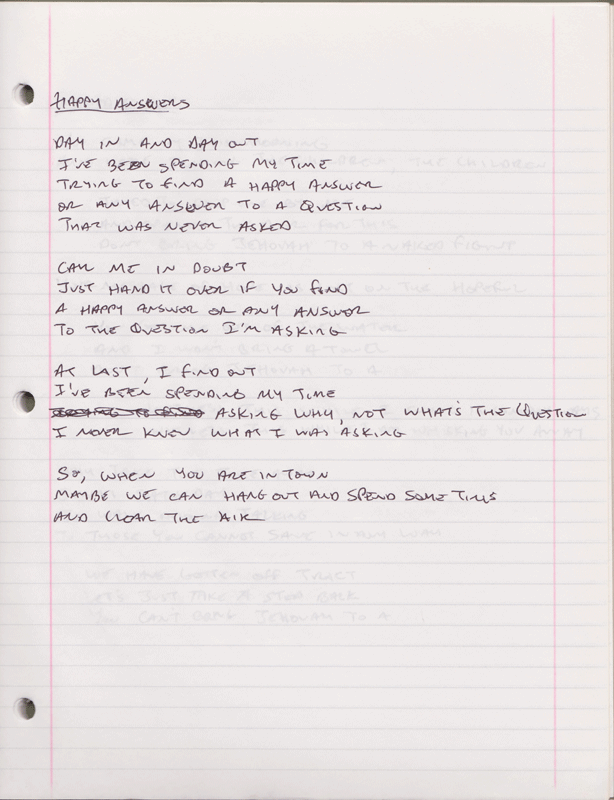 HAPPY ANSWERS
DAY IN AND DAY OUT
I'VE BEEN SPENDING MY TIME
TRYING TO FIND A HAPPY ANSWER
OR ANY ANSWER TO A QUESTION
THAT WAS NEVER ASKED
CALL ME IN DOUBT
JUST HAND IT OVER IF YOU FIND
A HAPPY ANSWER OR ANY ANSWER
TO THE QUESTION I'M ASKING
AT LAST, I FIND OUT
I'VE BEEN SPENDING MY TIME
ASKING WHY, NOT WHAT'S THE QUESTION
I NEVER KNEW WHAT I WAS ASKING
SO, WHEN YOU ARE IN TOWN
MAYBE WE CAN HANG OUT AND SPEND SOME TIME
AND CLEAR THE AIR
WE HAVE GOTTEN OFF TRACT
LET'S JUST TAKE A STEP BACK
YOU CAN'T BRING JEHOVAH TO A ...